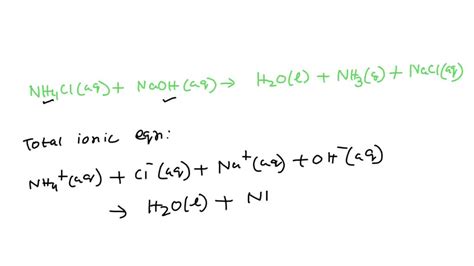 NH₄Cl(aq) + NaOH(aq) → H₂O(l) + NH₃(g) + NaCl(aq)
Total ionic eqn:
NH₄⁺(aq) + Cl⁻(aq) + Na⁺(aq) + OH⁻(aq)
→ H₂O(l) + NI